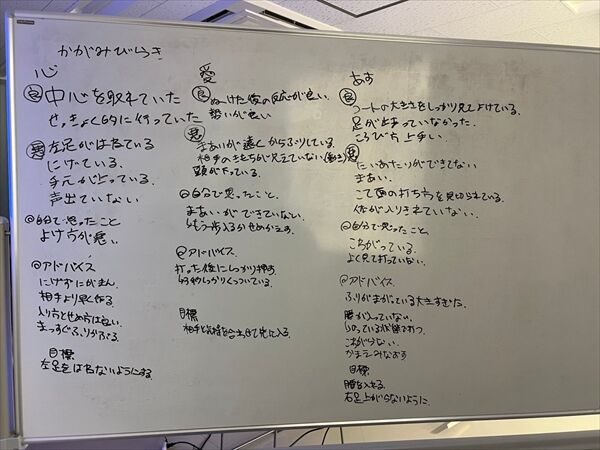 かがみびらき
心
良 中心を取れていた
せっきょく的に行っていた
悪 左足がはねている
にげている。
手元が上っている。
声出ていない
◎自分で思ったこと
よけ方が悪い。
◎アドバイス
にげずにがまん。
相手より早く作る
入り方とせめ方は良い。
まっすぐふりかぶる。
目標
左足をはねないようにする。
愛
良 ぬけた後の反応が良い。
勢いが良い
悪 まあいが遠くからふりしている。
相手の
頭が下っている。
◎自分で思ったこと、
まあいができていない、
もう一歩入るかせめかえす。
◎アドバイス、
打った後にしっかり押す。
しっかりくっついている。
目標
相手と気持を合させて先に入る。
あす
良 コートの大きさをしっかり見てよけている。
足が止まっていなかった。
ころび方上手い。
悪 たいあたりができてない
まあい。
こて面の打ち方を見切られている
体が入りきれていない。
◎自分で思ったこと、
ころがっている。
よく見て打っていない。
◎アドバイス
ふりがまがっている大きすぎた。
腰が入っていない。
かまえみなおす
目標
腰を入れる。
右足上がらないように。